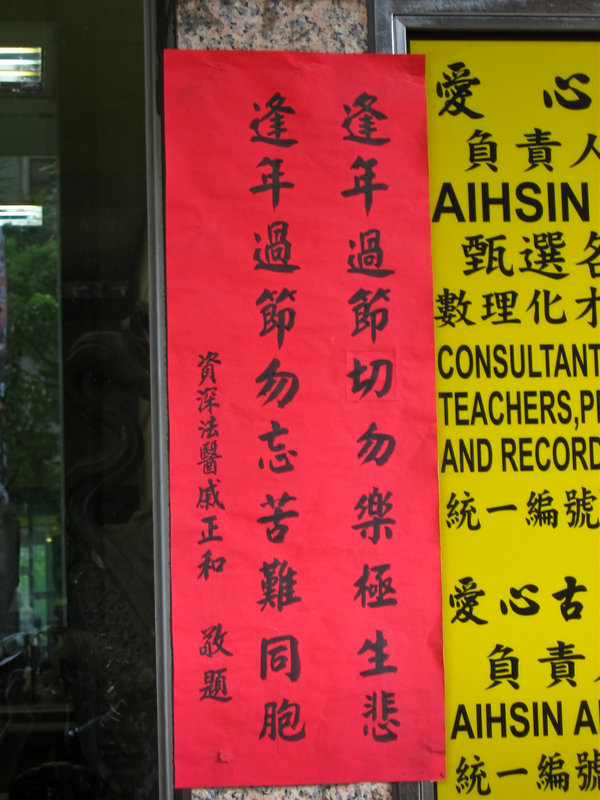 逢年過節切勿樂極生悲
逢年過節勿忘苦難同胞
資深法醫戚正和 敬題
愛心
負責人
AIHSIN
甄選各
數理化才
CONSULTANT
TEACHERS,
AND RECORD
統一編號
愛心古
負責人
AIHSIN
統一編號